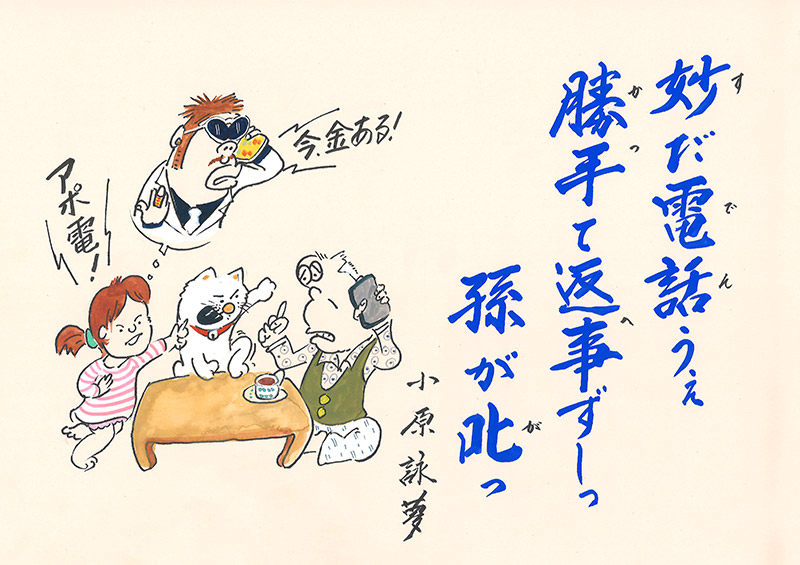 妙だ電話うぇ
すでん
勝手て返事ずーっ
かっへ
孫が叱っ
が
小原詠夢
今、金ある！
アポ電！